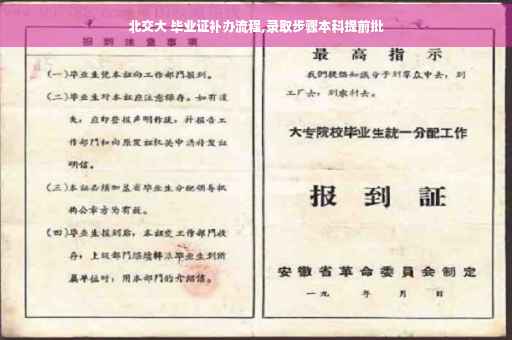 北交大 毕业证补办流程,录取步骤本科提前批
报到注意事项
(一)毕业生凭本证向工作部门报到。
(二)毕业生对本证应注意保存。如有遗
失，应即登报声明作废，并报告工
作部门和向原发证机关申请补发证
明信。
(三)本证必须加盖省毕业生分配领导机
构公章方为有效。
(四)毕业生报到后，本证交工作部门收
存；上级部门继续转派毕业生到所
属单位时，用本部门的介绍信。
最高指示
我们提倡知识分子到群众中去，到
工厂去，到农村去。
大专院校毕业生統一分配工作
报到証
安徽省革命委員会制定
一九 年 月 日